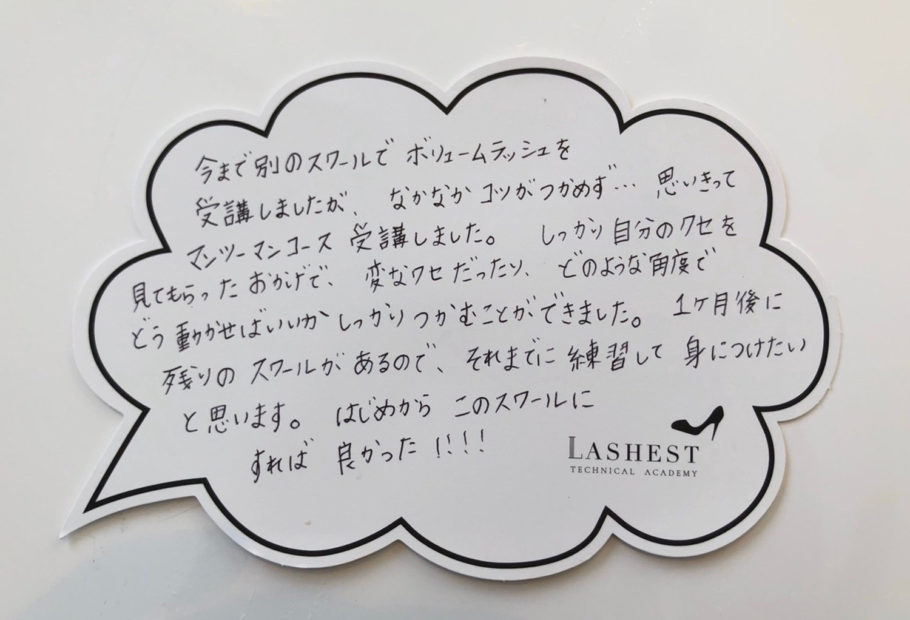 今まで別のスクールで ボリュームラッシュを
受講しましたが、なかなかコツがつかめず… 思いきって
マンツーマンコース 受講しました。 しっかり自分のクセを
見てもらったおかげで、変なクセだったり、どのような角度で
どう動かせばいいかしっかりつかむことができました。 1ヶ月後に
残りの スクールがあるので、それまでに練習して 身につけたい
と思います。 はじめから このスクールに
すれば 良かった!!!!
LASHEST
TECHNICAL ACADEMY